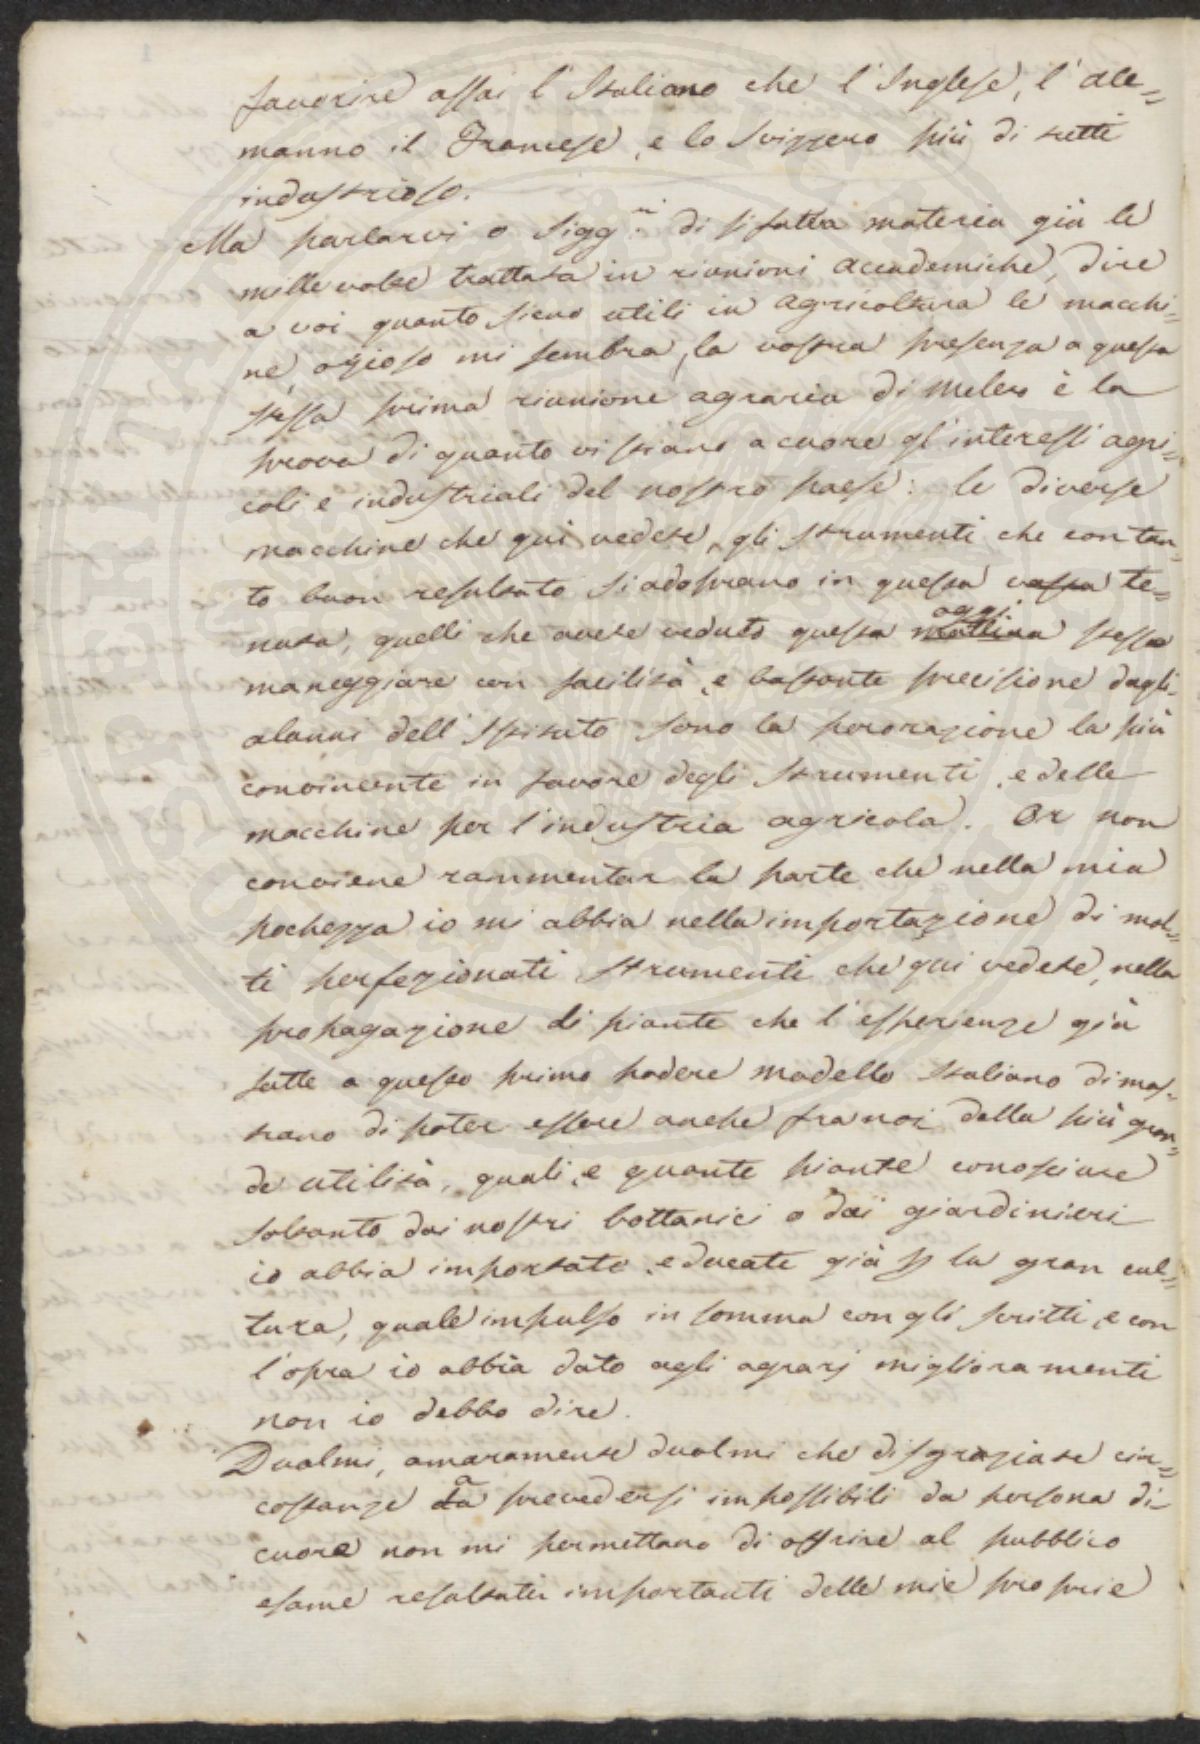 favorire assai l'Italiano che l'Inglese, l'Ale=
manno il Francese, e lo Svizzero più di tutti
industrioso.
Ma parlarvi o Sigg.ri di sì fatta materia già le
mille volte trattata in riunioni Accademiche, dire
a voi quanto sieno utili in Agricoltura le macchi=
ne, ozioso mi sembra, la vostra presenza a questa
stessa prima riunione agraria di Meleto è la
prova di quanto vi stiano a cuore gl'interessi agri=
coli e industriali del nostro paese: le diverse
macchine che quì vedete, gli strumenti che con tan=
to buon resultato si adoprano in questa vasta te=
nuta, quelli che avete veduto questa mattina oggi stesso
maneggiare con facilità, e bastante precisione dagli
alunni dell'Istituto sono la perorazione la più
convincente in favore degli strumenti, e delle
macchine per l'industria agricola. Or non
conviene rammentar la parte che nella mia
pochezza io mi abbia nella importazione di mol=
ti perfezionati strumenti che qui vedete, nella
propagazione di piante che l'esperienze già
fatte a questo primo podere modello Italiano dimos=
trano di poter essere anche fra noi della più gran=
de utilità, quali, e quante piante conosciute
soltanto dai nostri bottanici o dai giardinieri
io abbia importate, educate già p la gran cul=
tura, quale impulso in somma con gli scritti, e con
l'opra io abbia dato agli agrarj miglioramenti
non io debbo dire.
Duolmi, amaramente duolmi che disgraziate cir=
costanze da prevedersi impossibili da persona di
cuore non mi permettano di offrire al pubblico
esame resultati importanti delle mie proprie